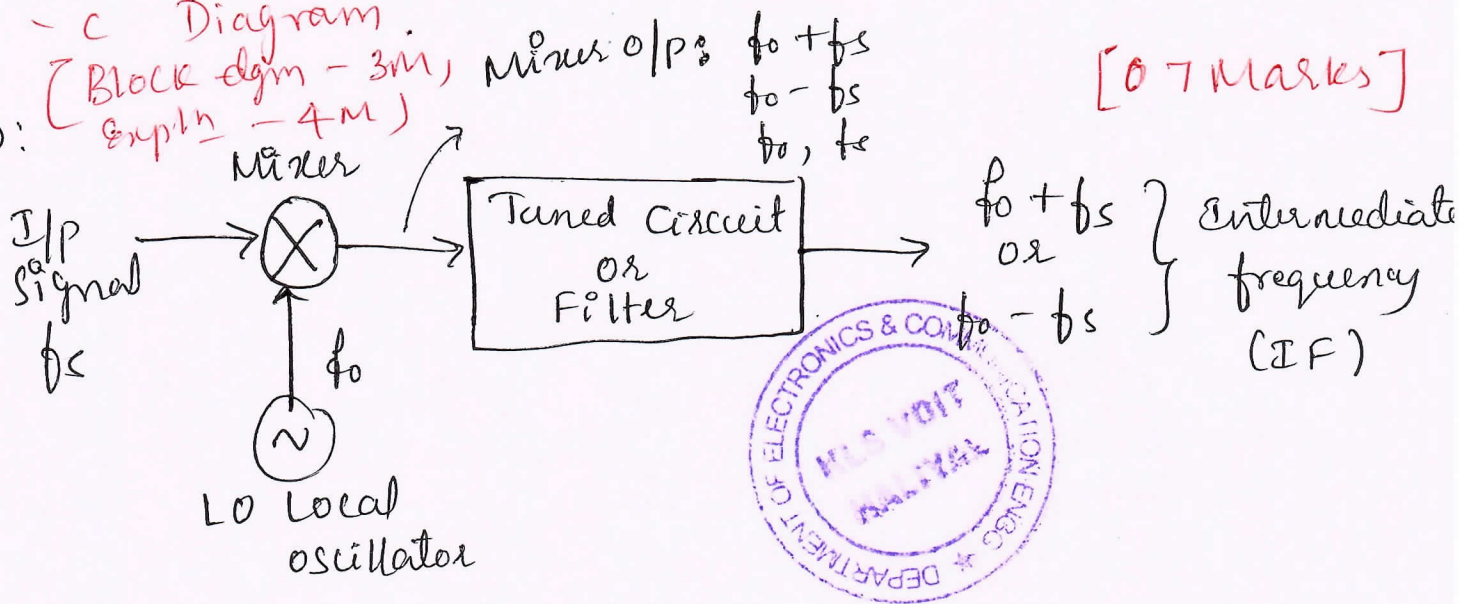 - c Diagram.
[Block dgm - 3M,
Expln - 4M)
[07 Marks]
Mixer o/p: fo + fs
fo - fs
fo, fs
Mixer
I/p
Signal
fs
fo
LO Local
oscillator
Tuned Circuit
or
Filter
fo + fs
or
fo - fs
Intermediate
frequency
(IF)
DEPARTMENT OF ELECTRONICS & COMMUNICATION ENGG ★
KLS VDIT
HALIYAL